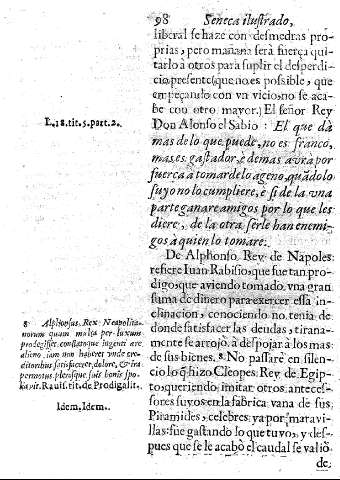 98 Seneca ilustrado,
liberal se haze con desmedras pro-
prias, pero mañana serà fuerça qui-
tarlo à otros para suplir el desperdi-
cio presente (que no es possible, que
empeçando con vn vicio, no se aca-
be con otro mayor.) El señor Rey
Don Alonso el Sabio: El que dà
mas de lo que puede, no es franco,
mas es gastador, è demas aurà por
fuerça à tomar de lo ageno, quãdo lo
suyo no lo cumpliere, è si de la vna
parte ganare amigos por lo que les
diere, de la otra serle han enemi-
gos à quien lo tomare.
De Alphonso Rey de Napoles
refiere Iuan Rabisio, que fue tan pro-
digo, que aviendo tomado vna gran
suma de dinero para exercer essa in-
clinacion, conociendo no tenia de
donde satisfacer las deudas, tirana-
mente se arrojò à despojar à los mas
de sus bienes. 8. No passarè en silen-
cio lo q̃ hizo Cleopes Rey de Egip-
to, queriendo imitar otros anteces-
sores suyos en la fabrica vana de sus
Piramides, celebres ya por maravi-
llas: fue gastando lo que tuvo, y des-
pues que se le acabò el caudal se valiò
de
L. 18. tit. 5. part. 2.
8 Alphonsus Rex Neapolita-
norum quum multa per luxum
prodegisset, constaretque ingenti ære
alieno, iam non haberet unde cre-
ditoribus satisfaceret, dolore, & ira
permotus plerosque suis bonis spo-
liavit. Rauis. tit. de Prodigalit.
Idem, Idem.